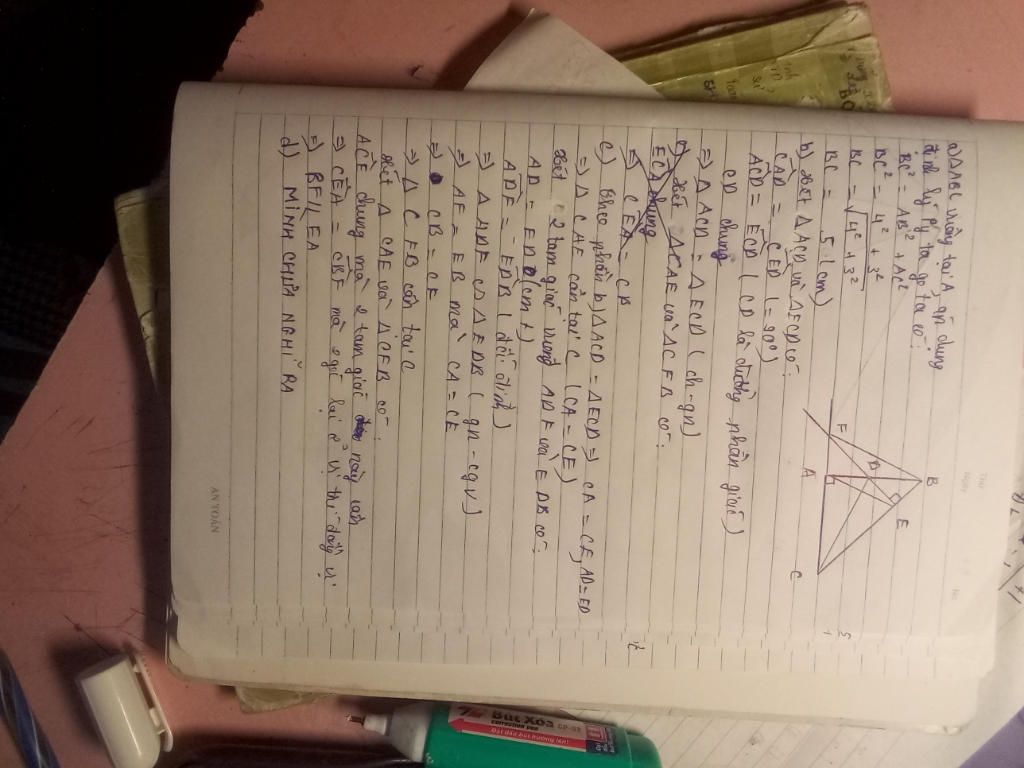 a) ΔABC vuông tại A, áp dụng
định lý py ta go ta có:
BC² = AB² + AC²
BC² = 4² + 3²
BC = √4² + 3²
BC = 5 (cm)
b) Xét ΔACD và ΔECD có:
CAD = CED (= 90°)
ACD = ECD (CD là đường phân giác)
CD chung
=> ΔACD = ΔECD (ch - gn)
c) Xét ΔCAE và ΔCFB có:
ECA chung
=> CEA = CB
c) theo phần b) ΔACD = ΔECD => CA = CE, AD = ED
=> ΔCAE cân tại C (CA = CE)
Xét 2 tam giác vuông ADF và EDB có:
AD = ED (cmt)
ADF = EDB (đối đỉnh)
=> ΔADF ∽ ΔEDB (gn - cgv)
=> AF = EB mà CA = CE
=> CB = CF
=> ΔCFB cân tại C
Xét ΔCAE và ΔCFB có:
ACE chung mà 2 tam giác này cân
=> CEA = CBF mà 2 góc lại ở vị trí đồng vị
=> BF // EA
d) MÌNH CHƯA NGHĨ RA
B
E
D
F
A
C
THỨ
NGÀY
AN TOÀN
Bút Xóa
CORRECTION PEN
CP-02